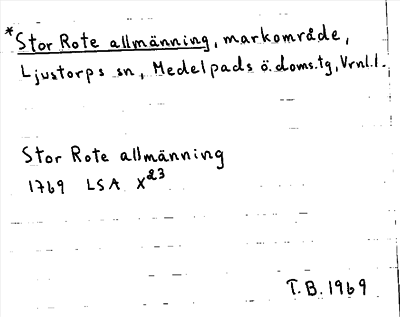 *Stor Rote allmänning, markområde,
Ljustorps sn, Medelpads ö. doms.tg, Vrnl.l.
Stor Rote allmänning
1769 LSA X23
T.B. 1969